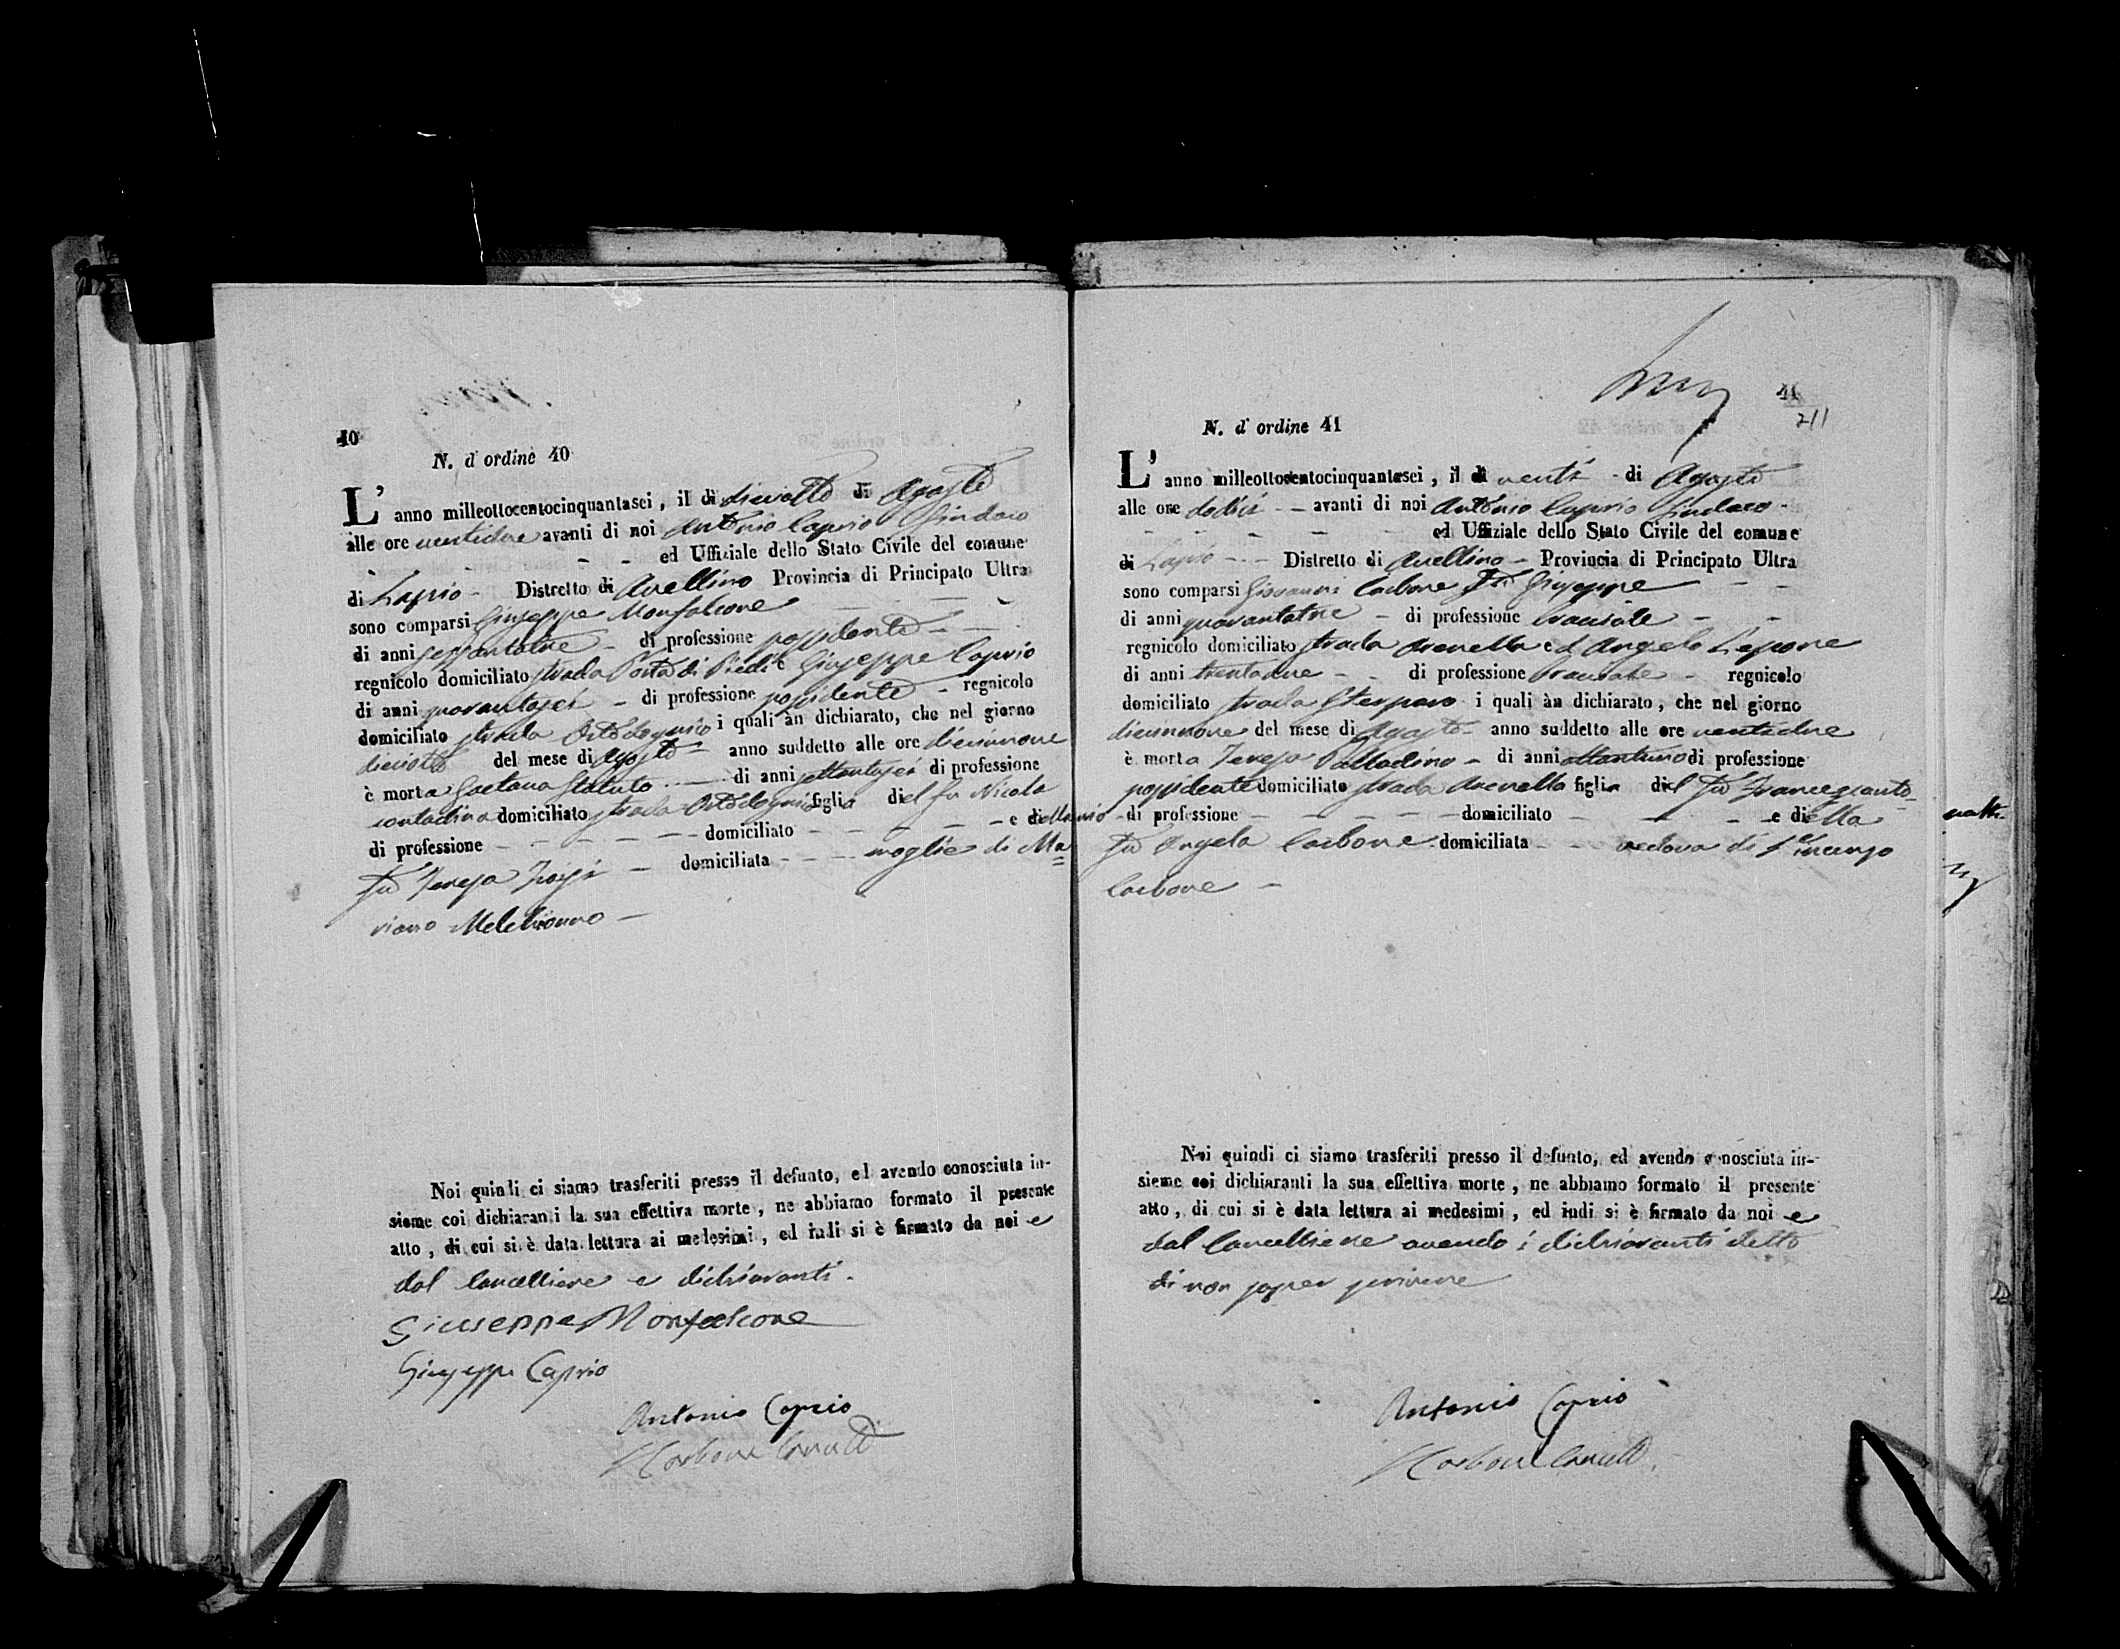 40
N. d'ordine 40
L'anno milleottocentocinquantasei, il dì dieciotto di Agosto
alle ore ventidue avanti di noi Antonio Caprio Sindaco
ed Uffiziale dello Stato Civile del comune
di Lapio Distretto di Avellino Provincia di Principato Ultra
sono comparsi Giuseppe Monfalcone
di anni sessantatre di professione possidente
regnicolo domiciliato strada Porta di Piedi e Giuseppe Caprio
di anni quarantasei di professione possidente regnicolo
domiciliato strada i quali àn dichiarato, che nel giorno
dieciotto del mese di Agosto anno suddetto alle ore diecinnove
è morta Gaetana Statuto di anni settantasei di professione
contadina domiciliato strada figlia del fu Nicola
di professione domiciliato e della
fu Teresa domiciliata moglie di Ma
riano Melchionno
Noi quindi ci siamo trasferiti presso il defunto, ed avendo conosciuta in-
sieme coi dichiaranti la sua effettiva morte, ne abbiamo formato il presente
atto, di cui si è data lettura ai medesimi, ed indi si è firmato da noi e
dal Cancelliere e dichiaranti.
Giuseppe Monfalcone
Giuseppe Caprio
Antonio Caprio
Carbone Cancell
41
211
N. d'ordine 41
L'anno milleottocentocinquantasei, il dì venti di Agosto
alle ore dodici avanti di noi Antonio Caprio Sindaco
ed Uffiziale dello Stato Civile del comune
di Lapio Distretto di Avellino Provincia di Principato Ultra
sono comparsi Giovanni Carbone fu Giuseppe
di anni quarantatre di professione bracciale
regnicolo domiciliato strada Arenella ed Angelo
di anni trentadue di professione bracciale regnicolo
domiciliato strada i quali àn dichiarato, che nel giorno
diecinnove del mese di Agosto anno suddetto alle ore ventidue
è morta Teresa Palladino di anni ottantuno di professione
possidente domiciliato strada Arenella figlia del fu Francescanto
nio di professione domiciliato e della
fu Angela Carbone domiciliata vedova di Vincenzo
Carbone
Noi quindi ci siamo trasferiti presso il defunto, ed avendo conosciuta in-
sieme coi dichiaranti la sua effettiva morte, ne abbiamo formato il presente
atto, di cui si è data lettura ai medesimi, ed indi si è firmato da noi e
dal Cancelliere avendo i dichiaranti detto
di non saper scrivere
Antonio Caprio
Carbone Cancell